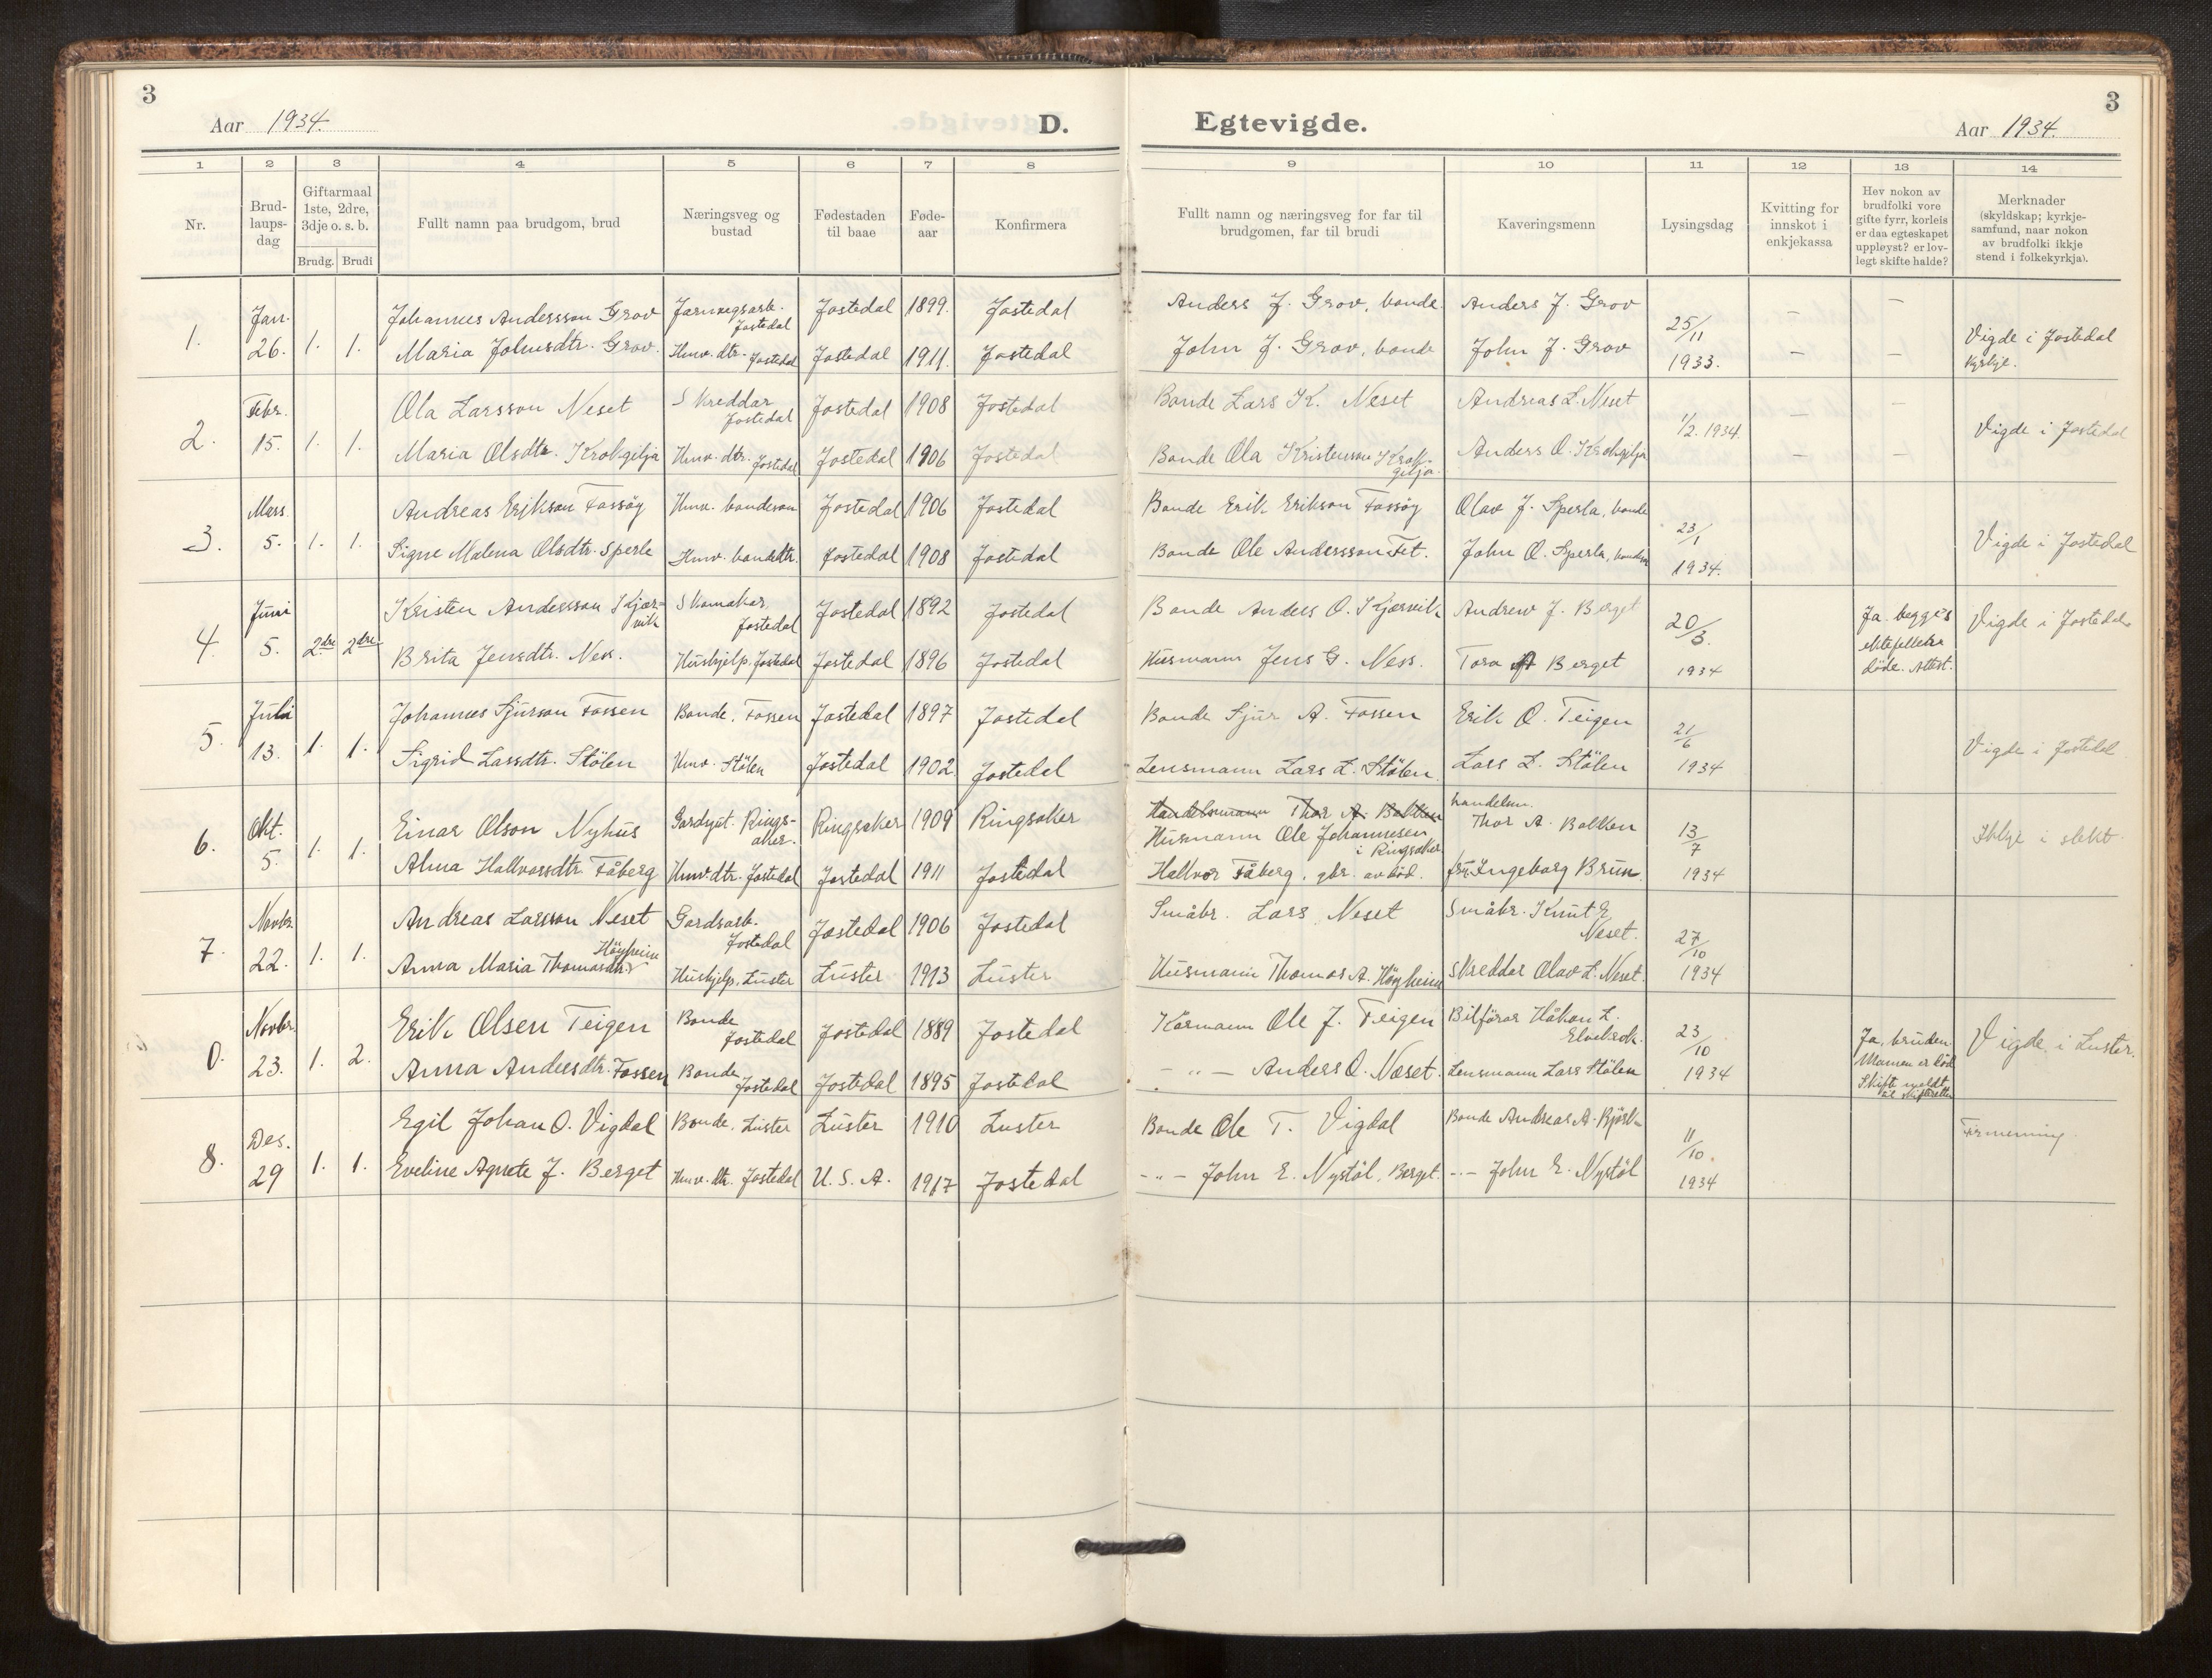 3
Aar 1934.
D.
Egtevigde.
Aar 1934.
3
1 2 3 4 5 6 7 8
9 10 11 12 13 14
Nr.
Brud-
laups-
dag
Giftarmaal
1ste, 2dre,
3dje o. s. b.
Brudg. Brudi
Fullt namn paa brudgom, brud
Næringsveg og
bustad
Fødestaden
til baae
Føde-
aar
Konfirmera
Fullt namn og næringsveg for far til
brudgomen, far til brudi
Kaveringsmenn
Lysingsdag
Kvitting for
innskot i
enkjekassa
Hev nokon av
brudfolki vore
gifte fyrr, korleis
er daa egteskapet
uppløyst? er lov-
legt skifte halde?
Merknader
(skyldskap; kyrkje-
samfund, naar nokon
av brudfolki ikkje
stend i folkekyrkja).
1. Jan. 26. 1. 1.
Johannes Andersson Grov
Jarnvegsarb. Jostedal
Jostedal 1899. Jostedal
Anders J. Grov, bonde.
Anders J. Grov
Maria Johnsdtr. Grov.
Hmv. dtr. Jostedal
Jostedal 1911. Jostedal
John J. Grov, bonde
John J. Grov
25/11 1933.
Vigde i Jostedal
Kyrkje.
2. Febr. 15. 1. 1.
Ola Larsson Neset
Skreddar Jostedal
Jostedal 1908 Jostedal
Bonde Lars K. Neset
Andreas L. Neset
Maria Olsdtr. Krokgilja
Hmv. dtr. Jostedal
Jostedal 1906 Jostedal
Bonde Ola Kristensson Krok-
gilja.
Anders O. Krokgilja
1/2. 1934.
Vigde i Jostedal
3. Mars 5. 1. 1.
Andreas Erikson Fossøy
Hmv. bondeson
Jostedal 1906 Jostedal
Bonde Erik Erikson Fossøy
Olav J. Sperla, bonde
Signe Malena Olsdtr. Sperle
Hmv. bondedtr.
Jostedal 1908 Jostedal
Bonde Ole Andersson Fet.
John O. Sperla,
23/1 1934.
Vigde i Jostedal
4. Juni 5. 2dre 2dre
Kristen Andersson Skjær-
vik
Skomakar, Jostedal
Jostedal 1892 Jostedal
Bonde Anders O. Skjærvik
Andrew J. Berget
Brita Jensdtr. Nes.
Hushjelp. Jostedal
Jostedal 1896 Jostedal
Husmann Jens G. Ness.
Tora Berget
20/3. 1934
Ja. begges
ektefeller
döde. Attest.
Vigde i Jostedal.
5. Juli 13. 1. 1.
Johannes Sjurson Fossen
Bonde. Fossen
Jostedal 1897 Jostedal
Bonde Sjur A. Fossen
Erik O. Teigen
Sigrid Larsdtr. Stölen
Hmv. Stölen
Jostedal 1902. Jostedal
Lensmann Lars L. Stölen.
Lars L. Stölen
21/6 1934
Vigde i Jostedal
6. Okt. 5. 1. 1.
Einar Olson Nyhus
Gardsgut. Rings-
aker.
Ringsaker 1909 Ringsaker
Handelsmann Thor A. Bakken
Husmann Ole Johannesen
i Ringsaker
handelsm.
Thor A. Bakken
Alma Hallvarsdtr. Fåberg
Hmv dtr. Jostedal
Jostedal 1911 Jostedal
Hallvor Fåberg, gbr. avdöd.
fru Ingeborg Brun.
13/7 1934
Ikkje i slekt
7. Novbr. 22. 1. 1.
Andreas Larsson Neset
Gardsarb. Jostedal
Jostedal 1906 Jostedal
Småbr. Lars Neset
Småbr. Knut E.
Neset.
Anna Maria Thomasdtr. Höyheim
Hushjelp. Luster
Luster 1913 Luster
Husmann Thomas A. Höyheim
Skreddar Olav L. Neset.
27/10 1934
0. Novbr. 23. 1. 2.
Erik Olsen Teigen
Bonde Jostedal
Jostedal 1889 Jostedal
Kårmann Ole J. Teigen
Bilförar Håkon L.
Anna Andersdtr. Fossen
Bonde Jostedal
Jostedal 1895 Jostedal
- " - Anders O. Næset.
Lensmann Lars Stölen
23/10 1934
Ja, bruden.
Mannen er död
Skifte meldt
til skifteretten
Vigde i Luster.
8. Des. 29 1. 1.
Egil Johan O. Vigdal
Bonde. Luster
Luster 1910 Luster
Bonde Ole T. Vigdal
Bonde Andreas A. Björk-
Eveline Agnete J. Berget
Hmv. dtr. Jostedal
U. S. A. 1917 Jostedal
- " - John E. Nystöl, Berget.
- " - John E. Nystöl
11/10. 1934
Firmenning.